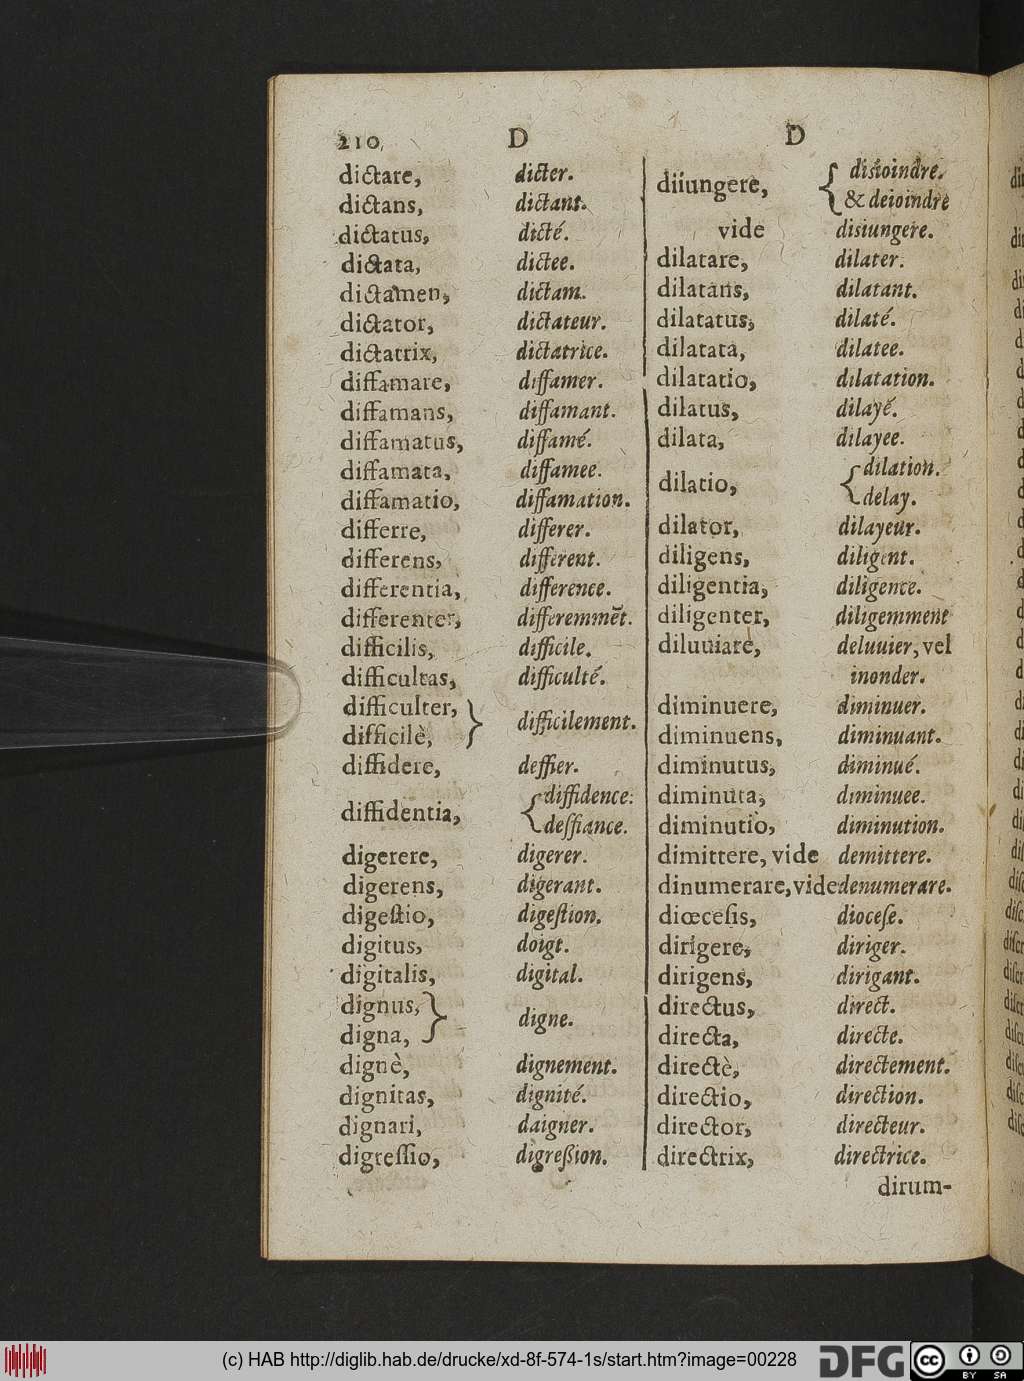 210 D D
dictare, dicter.
dictans, dictant.
dictatus, dicté.
dictata, dictee.
dictamen, dictam.
dictator, dictateur.
dictatrix, dictatrice.
diffamare, diffamer.
diffamans, diffamant.
diffamatus, diffamé.
diffamata, diffamee.
diffamatio, diffamation.
differre, differer.
differens, different.
differentia, difference.
differenter, differemmēt.
difficilis, difficile.
difficultas, difficulté.
difficulter,
difficilè, } difficilement.
diffidere, deffier.
diffidentia, { diffidence:
deffiance.
digerere, digerer.
digerens, digerant.
digeſtio, digeſtion.
digitus, doigt.
digitalis, digital.
dignus,
digna, } digne.
dignè, dignement.
dignitas, dignité.
dignari, daigner.
digreſſio, digreßion.
diiungere, { disioindre.
& deioindre
vide disiungere.
dilatare, dilater.
dilatans, dilatant.
dilatatus, dilaté.
dilatata, dilatee.
dilatatio, dilatation.
dilatus, dilayé.
dilata, dilayee.
dilatio, { dilation.
delay.
dilator, dilayeur.
diligens, diligent.
diligentia, diligence.
diligenter, diligemment
diluuiare, deluuier, vel
inonder.
diminuere, diminuer.
diminuens, diminuant.
diminutus, diminué.
diminuta, diminuee.
diminutio, diminution.
dimittere, vide demittere.
dinumerare, vide denumerare.
diœceſis, dioceſe.
dirigere, diriger.
dirigens, dirigant.
directus, direct.
directa, directe.
directè, directement.
directio, direction.
director, directeur.
directrix, directrice.
dirum-
(c) HAB http://diglib.hab.de/drucke/xd-8f-574-1s/start.htm?image=00228
DFG
cc BY SA